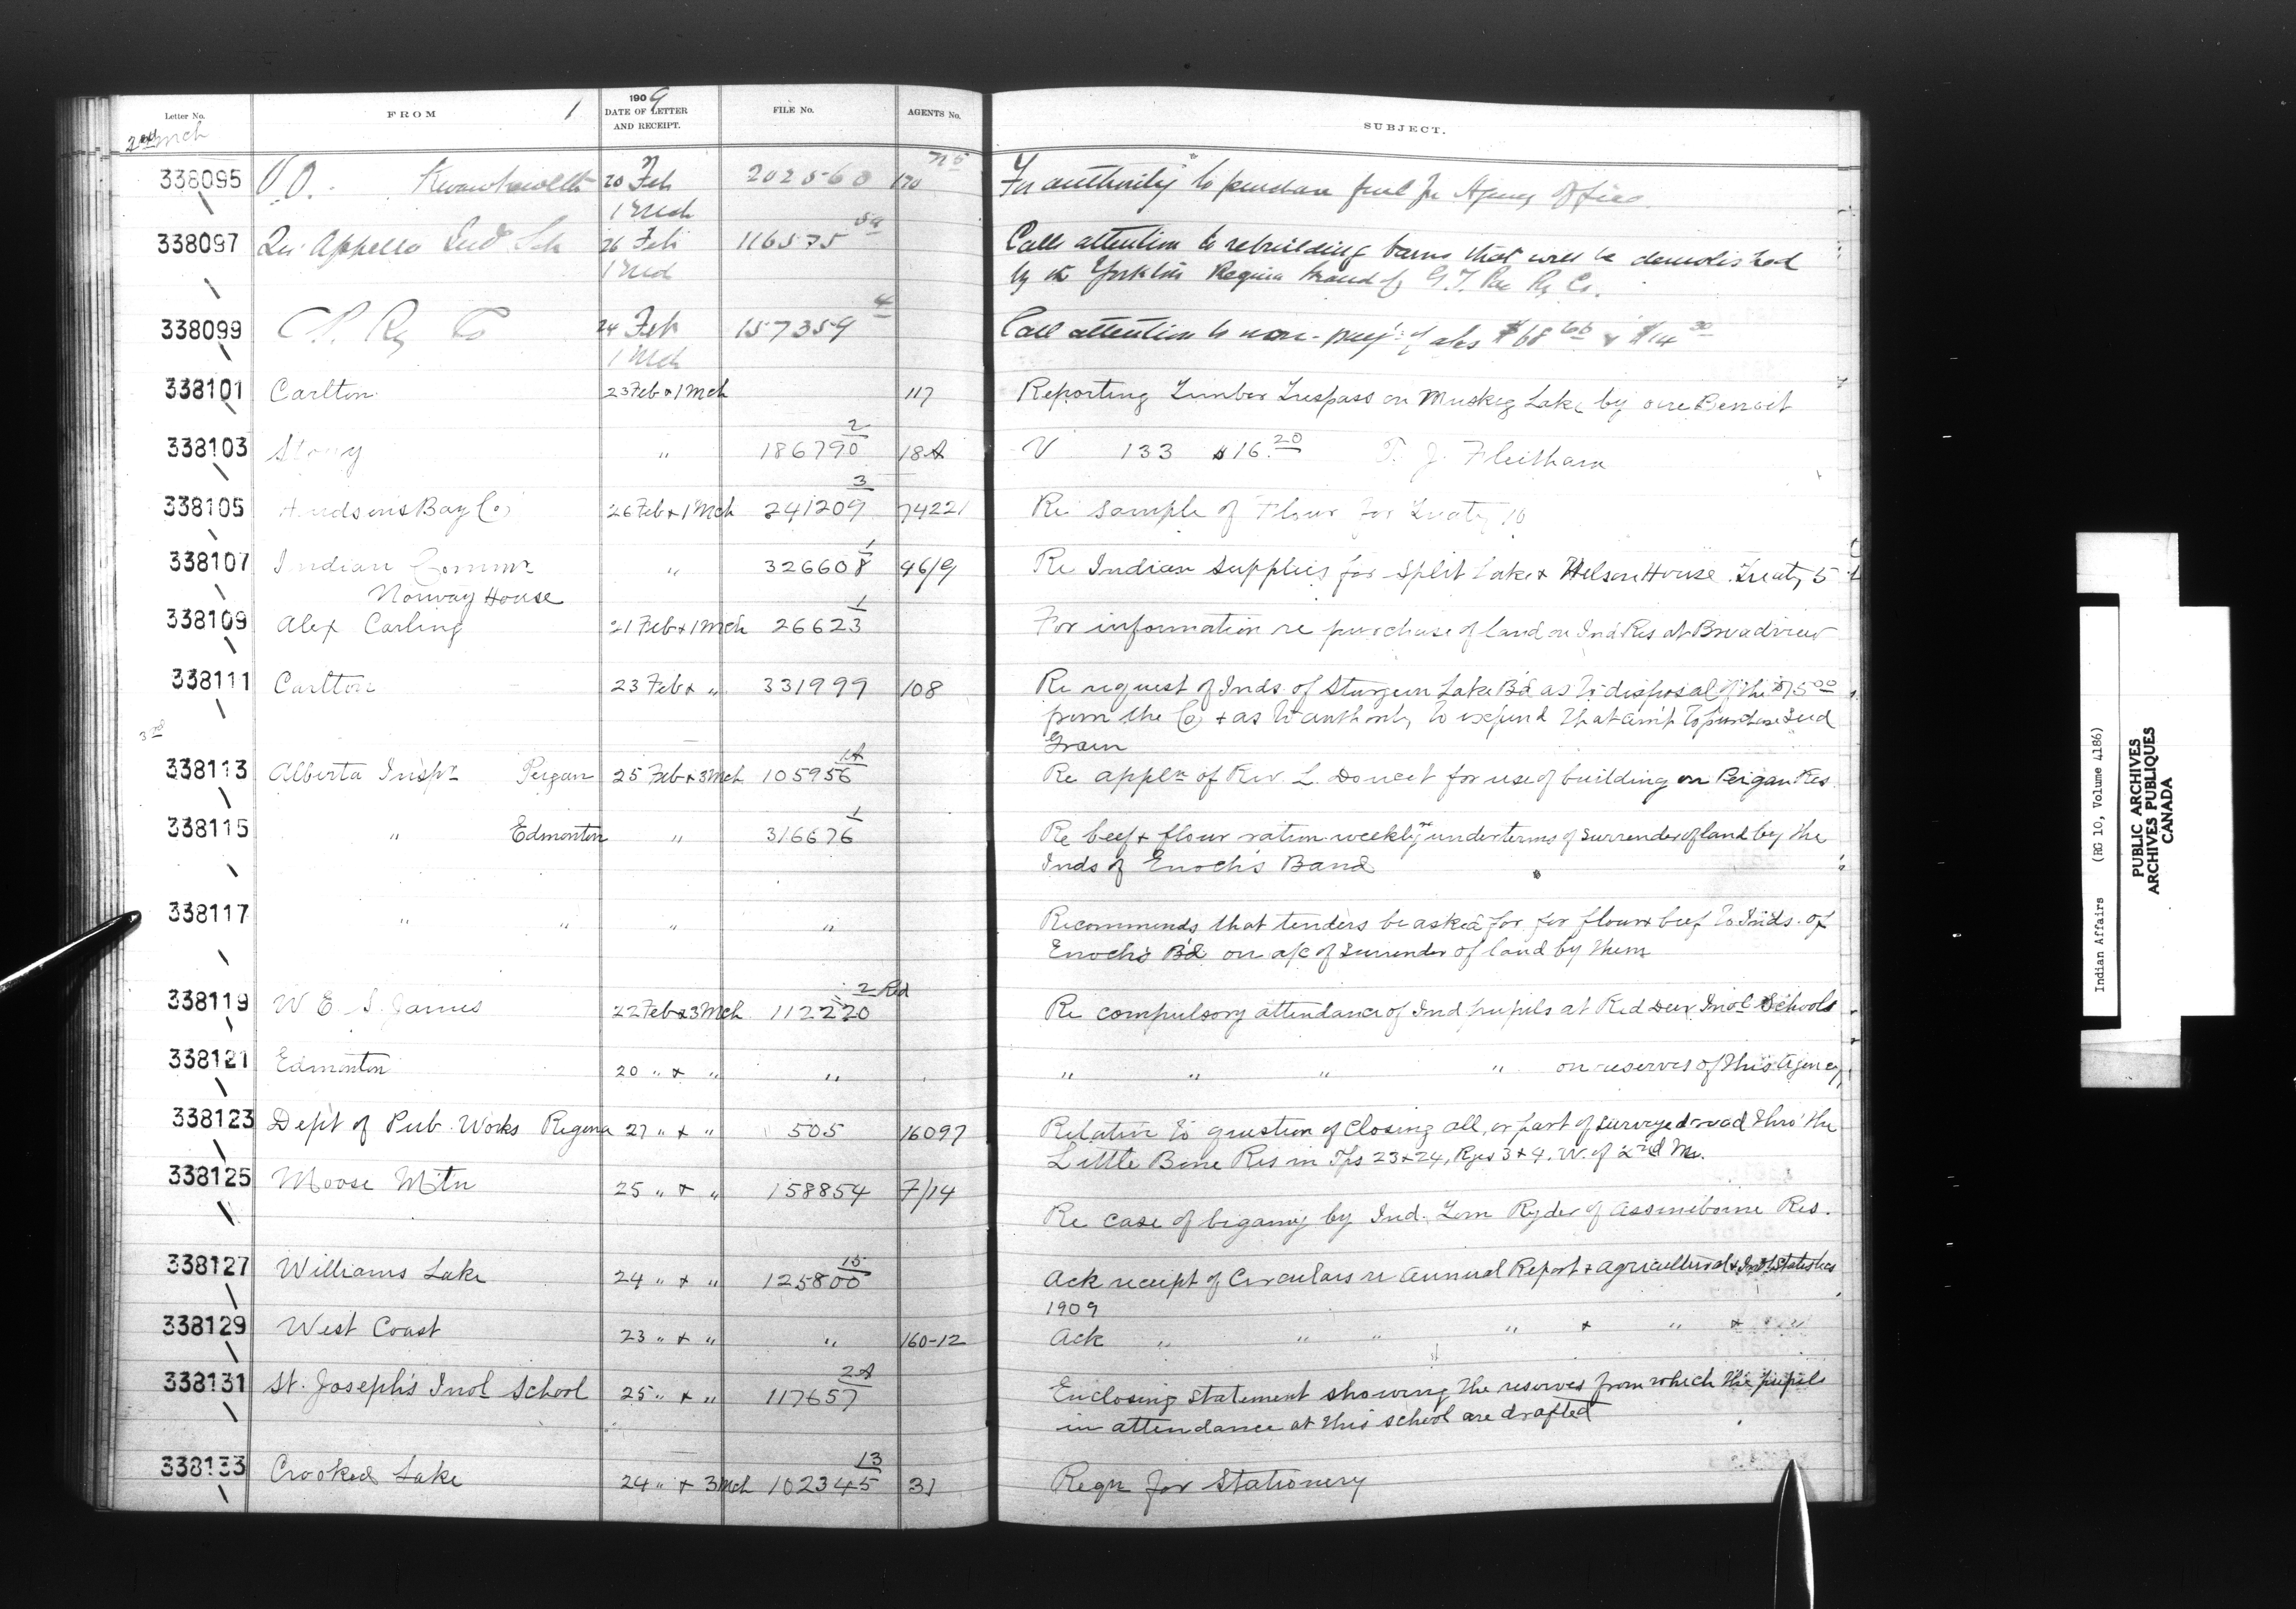 Letter No. FROM 1 1909 DATE OF LETTER AND RECEIPT. FILE No. AGENTS No. SUBJECT.
2nd Mch
338095 V.O. Kwawkewlth 20 Feb 202560 170 For authority to purchase fuel for Agency Office
1 Mch
338097 Qu'Appelle Ind Sch 26 Feb 116575 Call attention to rebuilding barns that will be demolished
1 Mch by the Yorkton Regina branch of G.T. Pac Ry Co.
338099 C P. Ry Co 24 Feb 157359 4 Call attention to non-pay't of a/cs $68 66 & $14 30
1 Mch
338101 Carlton 23 Feb & 1 Mch 117 Reporting Timber Trespass on Muskeg Lake by one Benoit
338103 Stony " 186790 2 18A V 133 $16.20 T. J. Fleetham
338105 Hudsons Bay Co 26 Feb & 1 Mch 241209 3 74221 Re Sample of Flour for Treaty 10
338107 Indian Commr " 326608 1 96/9 Re Indian Supplies for Split Lake & Nelson House Treaty 5
Norway House
338109 Alex Carling 21 Feb & 1 Mch 26623 1 For information re purchase of land on Ind Res at Broadview
338111 Carlton 23 Feb & " 331999 108 Re request of Inds. of Sturgeon Lake Bd as to disposal of the $75 00
from the Co & as to authority to expend that am't to purchase Seed
Grain
3rd
338113 Alberta Inspr Peigan 25 Feb & 3 Mch 105956 1A Re appln of Rev. L. Doucet for use of building on Peigan Res.
338115 " Edmonton " 316676 1 Re beef & flour ration weekly under terms of surrender of land by the
Inds of Enoch's Band
338117 " " " " Recommends that tenders be asked for for flour & beef to Inds. of
Enoch's Bd on a/c of Surrender of land by them
338119 W E. S. James 22 Feb & 3 Mch 112220 2 Red Re compulsory attendance of Ind pupils at Red Deer Indl Schools
338121 Edmonton 20 " & " " " " " " on reserves of this Agency
338123 Dep't of Pub. Works Regina 27 " & " 505 16097 Relative to question of closing all, or part of surveyed road thro' the
Little Bone Res in Tps 23 & 24, Rges 3 & 4. W. of 2nd M.
338125 Moose Mtn 25 " & " 158854 7/14
Re case of bigamy by Ind. Tom Ryder of Assiniboine Res.
338127 Williams Lake 24 " & " 125800 15 Ack receipt of Circulars re Annual Report & Agricultural & Indl Statistics
1909
338129 West Coast 23 " & " " 160-12 Ack " " " " & " & "
338131 St. Joseph's Indl School 25 " & " 117657 2A Enclosing statement showing the reserves from which the pupils
in attendance at this school are drafted
338133 Crooked Lake 24 " & 3 Mch 102345 13 31 Reqn for Stationery
Indian Affairs (RG 10, Volume 4186)
PUBLIC ARCHIVES
ARCHIVES PUBLIQUES
CANADA